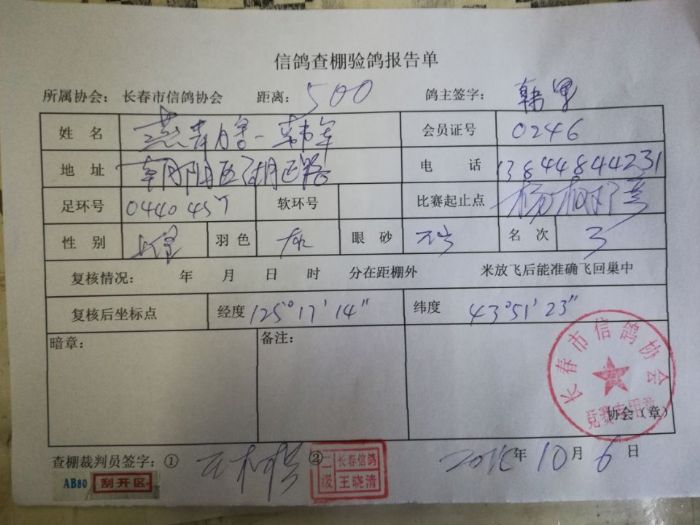 信鸽查棚验鸽报告单
所属协会： 长春市信鸽协会 距离： 500 鸽主签字： 韩军
姓 名 韩军 会员证号 0246
地 址 朝阳区 电 话 13844844231
足环号 0440457 软环号 比赛起止点
性 别 羽色 灰 眼 砂 名 次 3
复核情况： 年 月 日 时 分在距棚外 米放飞后能准确飞回巢中
复核后坐标点 经度 125°17′14″ 纬度 43°51′23″
暗章： 备注：
长春市信鸽协会
竞赛专用章
协会（章）
查棚裁判员签字：① ② 二级 长春信鸽 王晓清 年 10 月 6 日
AB80 刮开区